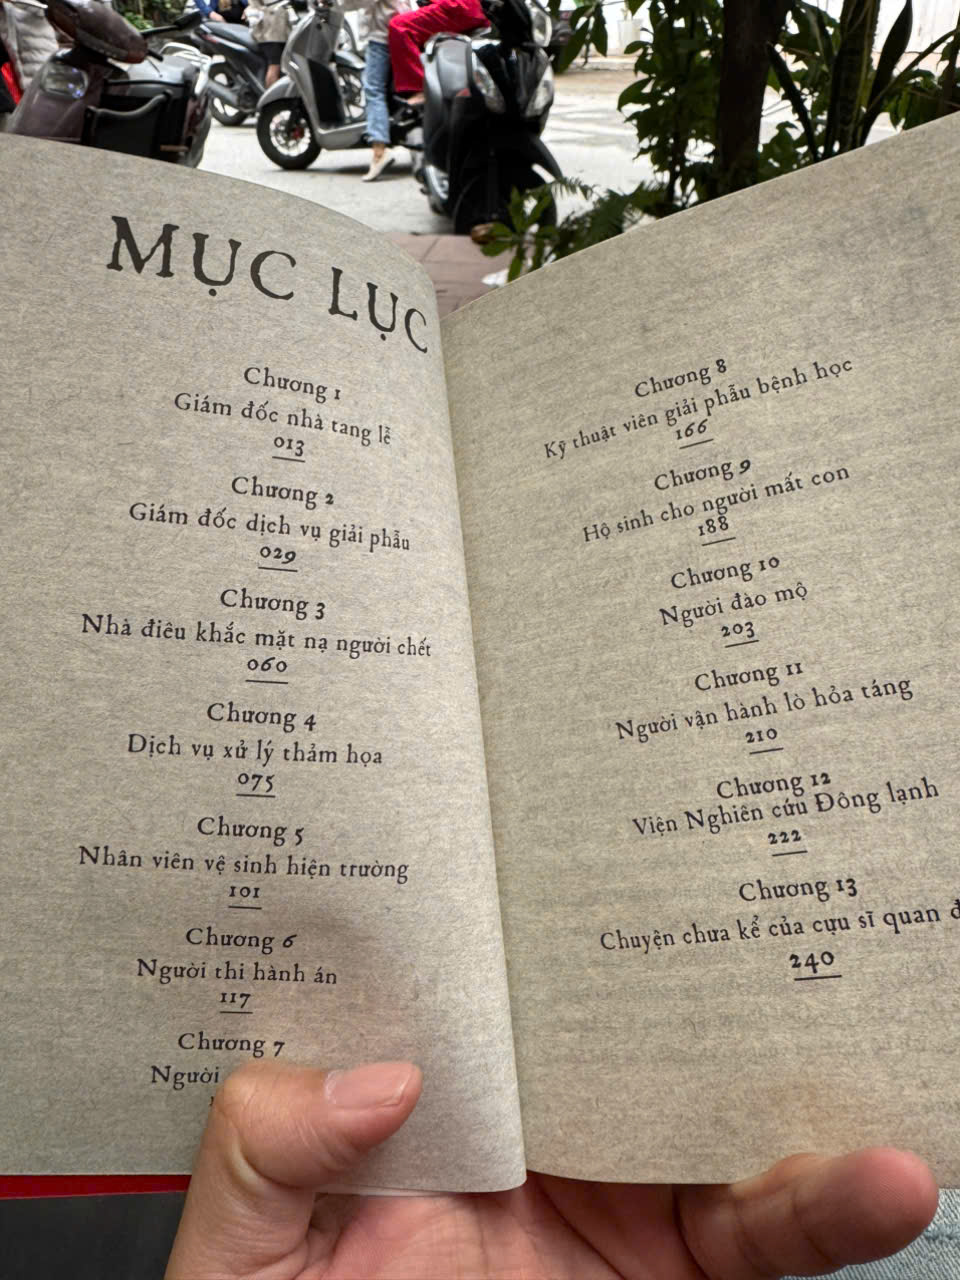 MỤC LỤC
Chương 1
Giám đốc nhà tang lễ
013
Chương 2
Giám đốc dịch vụ giải phẫu
029
Chương 3
Nhà điêu khắc mặt nạ người chết
060
Chương 4
Dịch vụ xử lý thảm họa
075
Chương 5
Nhân viên vệ sinh hiện trường
101
Chương 6
Người thi hành án
117
Chương 7
Người
Chương 8
Kỹ thuật viên giải phẫu bệnh học
166
Chương 9
Hộ sinh cho người mất con
188
Chương 10
Người đào mộ
203
Chương 11
Người vận hành lò hỏa táng
210
Chương 12
Viện Nghiên cứu Đông lạnh
222
Chương 13
Chuyện chưa kể của cựu sĩ quan
240